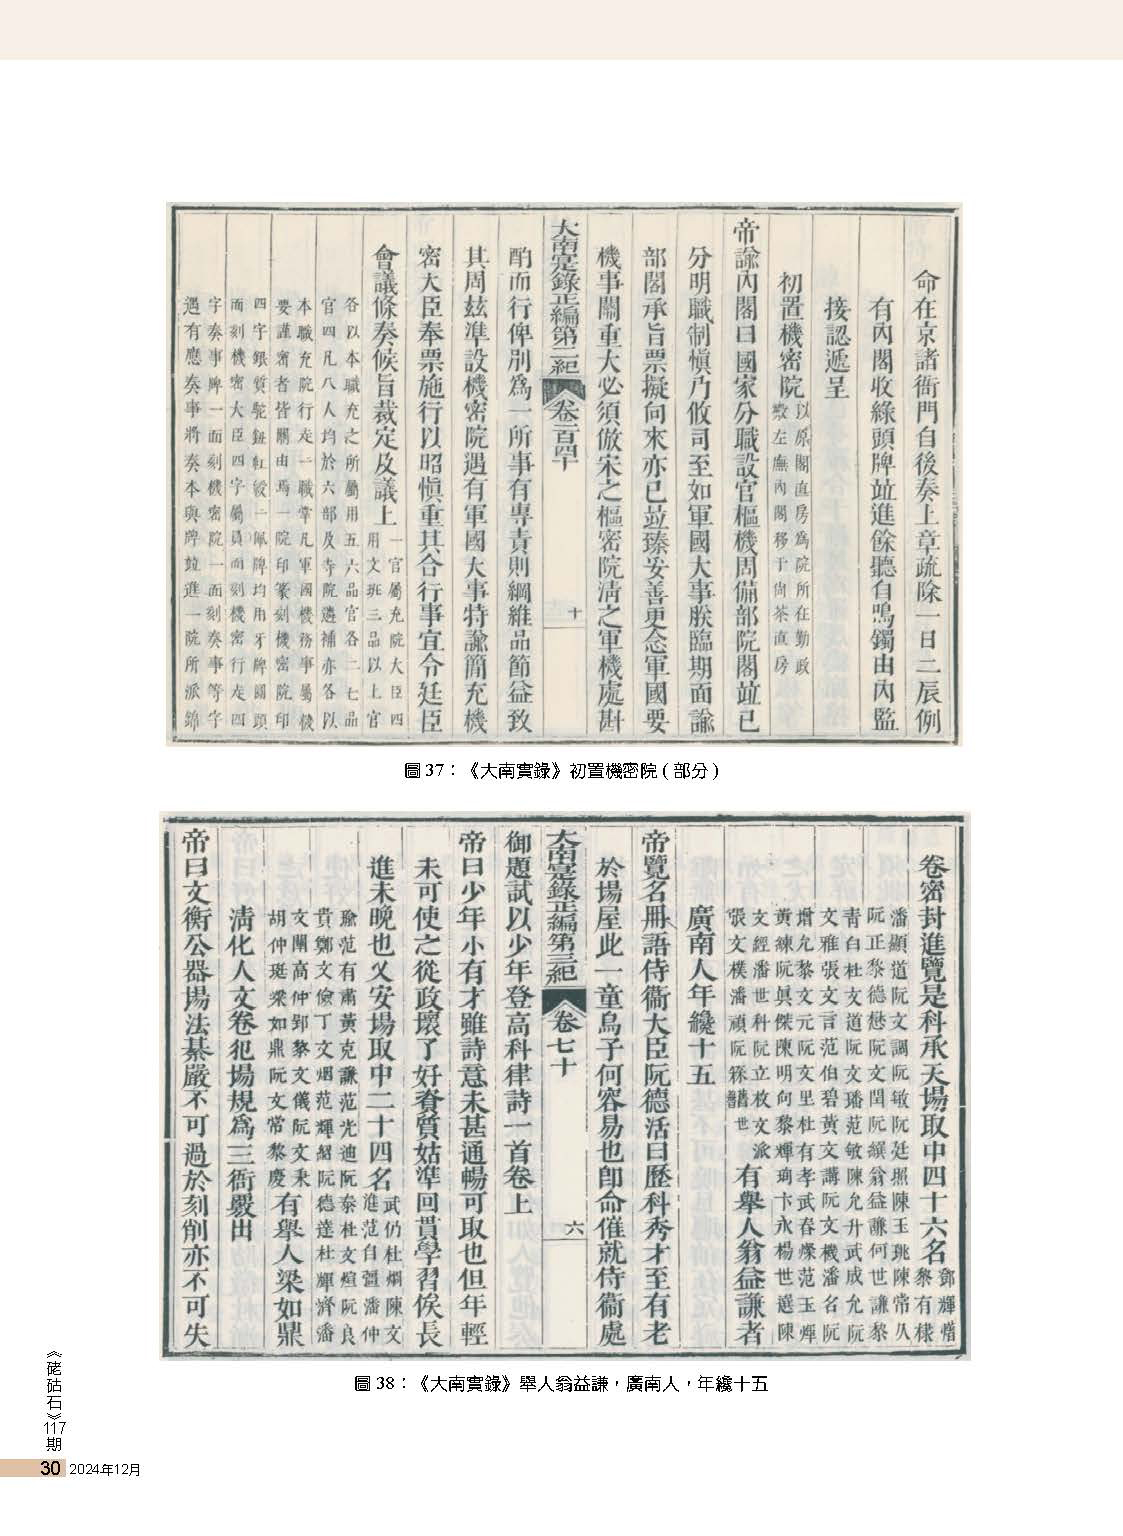 命在京諸衙門自後奏上章疏除一日二辰例
有內閣收綠頭牌竝進餘聽自鳴鐲由內監
接認遞呈
初置機密院
以原閣直房爲院所在勤政
殿左廡內閣移于尙茶直房
帝諭內閣曰國家分職設官樞機周備部院閣竝已
分明職制愼乃攸司至如軍國大事朕臨期面諭
部閣承旨票擬向來亦已竝臻妥善更念軍國要
機事關重大必須倣宋之樞密院淸之軍機處斟
大南寔錄正編第二紀 卷一百四十 十
酌而行俾別爲一所事有專責則綱維品節益致
其周玆準設機密院遇有軍國大事特諭簡充機
密大臣奉票施行以昭愼重其合行事宜令廷臣
會議條奏候旨裁定及議上
一官屬充院大臣四
用文班三品以上官
各以本職充之所屬用五六品官各二七品
官四凡八人均於六部及寺院遴補亦各以
本職充院行走一職掌凡軍國機務事屬
要謹密者皆關由焉一院印篆刻機密院印
四字銀質駝鈕紅綬一佩牌均用牙牌圓頭
而刻機密大臣四字屬員面刻機密行走四
字奏事牌一面刻機密院一面刻奏事等字
遇有應奏事將奏本與牌竝進一院所派錦
圖 37：《大南實錄》初置機密院 ( 部分 )
卷密封進覽是科承天場取中四十六名
鄧輝
黎有棣
潘顯道阮文調阮敏阮廷照陳玉珧陳常久
阮正黎德懋阮文閏阮纘翁益謙何世謙黎
青白杜文道阮文璠范敏陳允升武咸允阮
文雅張文言范伯碧黃文講阮文機潘名阮
增允黎文元阮文里杜有孝武春爍范玉
黃練阮眞傑陳明向黎輝珣卞永楊世選陳
文經潘世科阮立枚文派
張文樸潘頑阮世
有舉人翁益謙者
廣南人年纔十五
帝覽名冊語侍衞大臣阮德活曰歷科秀才至有老
於場屋此一童烏子何容易也卽命催就侍衞處
大南寔錄正編第三紀 卷七十 六
御題試以少年登高科律詩一首卷上
帝曰少年小有才雖詩意未甚通暢可取也但年輕
未可使之從政壞了好資質姑準回貫學習俟長
進未晚也乂安場取中二十四名
武仍杜烱陳文
進范自疆潘仲
隃范有肅黃克謙范光迪阮泰杜文煊阮良
貴鄭文儉丁文烟范輝紹阮德達杜輝濟潘
文闈高仲郢黎文儀阮文秉
胡仲珽梁如鼎阮文常黎慶
有舉人梁如鼎
淸化人文卷犯場規爲三衙覈出
帝曰文衡公器場法綦嚴不可過於刻削亦不可失
圖 38：《大南實錄》舉人翁益謙，廣南人，年纔十五
《硓𥑮石》117期
30 2024年12月